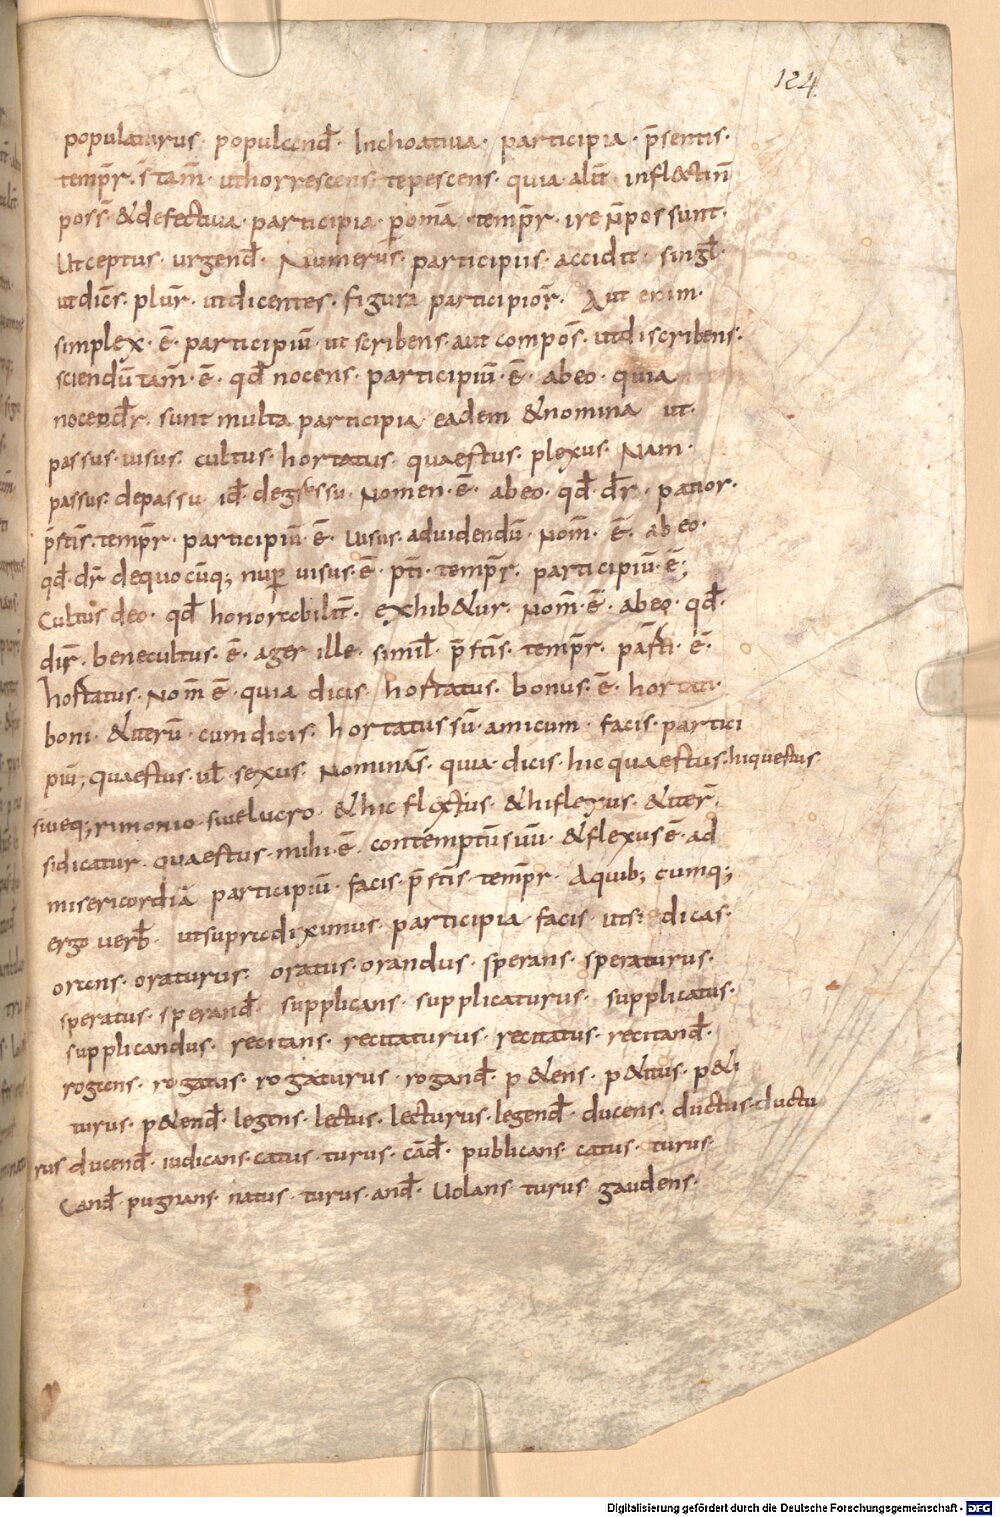 124
populaturus· populcend̄· Inchoatiua· participia· p̄sentis·
temp̄r· s̄ tam̄· uthorrescens tepescens· quia aliť inflectiň
poss̄· &defectiua participia· p̄ omā· tempr̄· ire ñpossunt·
Utceptus· urgend̄· Numerus· participiis· accidit· singl̄·
utdicēs· plur̄· utdicentes· figura participior̄· Aut enim·
simplex· ē· participiū· ut scribens· aut compos̄· utdiscribens·
sciendū tam̄· ē· qđ nocens· participiū· ē· abeo· quia
nocendr̄· sunt multa participia eadem &nomina ut·
passus· uisus· cultus· hortatus· quaestus· plexus· Nam·
passus· depassu· id̄· degressu· Nomen· ē· abeo· qđ· dr̄· patior·
p̄stis̄· tempr̄· participiū· ē· Uisus· aduidendū· Nom̄· ē· abeo·
qđ· dr̄ dequocūq; nup̄ uisus· ē· p̄ti· tempr̄· participiū· ē;
Cultus deo· qđ honorcebiliť· exhib&ur· Nom̄· ē· abeo· qđ·
dir̄· benecultus· ē· ager ille· simil̄· p̄stis̄· tempr̄· pasti· ē·
hostatus· Nom̄ ē· quia dicis hostatus· bonus· ē· hortati·
boni· &iterū· cumdicis· hortatus sū· amicum· facis· partici
piū; quaestus· ul̄ sexus· Nominas̄· quia· dicis· hic quaestus· hiquestus
siueq;rimonio siuelucro· &hic flextus· &hiflexus· &iter̄·
sidicatur· quaestus· mihi· ē· contemptū suū· &flexus ē· ad
misericordiā participiū· facis· p̄stis̄ tempr̄· Aquib; cumq;
ergo uerb̄· utsuprcediximus· participia· facis· utsi dicas·
orcens· oraturus· oratus· orandus· sperans· speraturus·
speratus· sperand̄ supplicans· supplicaturus· supplicatus·
supplicandus· recitans· recitaturus· recitatus· recitand̄·
rogcens· rogatus· rogaturus· rogand̄· p&ens· p&itus· p&i
turus· p&end̄· legens· lectus· lecturus· legend̄· ducens· ductus· ductu
rus ducend̄· iudicans· catus· turus· cād̄· publicans catus· turus·
Cand̄· pugnans· natus· turus· and̄· Uolans· turus gaudens·
Digitalisierung gefördert durch die Deutsche Forschungsgemeinschaft - DFG